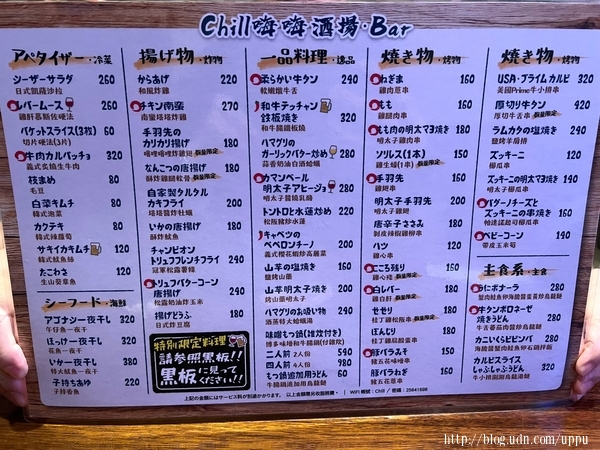 Chill嗨嗨酒場·Bar
アペタイザー·冷菜
シーザーサラダ 260
日式凱薩沙拉
レバームース 260
雞肝慕斯佐梗法
バゲットスライス(3枚) 60
切片梗法(3片)
牛肉カルパッチョ 320
義式炙燒生牛肉
枝まめ 80
毛豆
白菜キムチ 80
韓式泡菜
カクテキ 80
韓式辣蘿蔔
サキイカキムチ 120
韓式魷魚絲
たこわさ 120
生山葵章魚
シーフード·海鮮
アゴナシ一夜干し 320
午仔魚一夜干
ほっけ一夜干し 320
花魚一夜干
いか一夜干し 380
特大魷魚一夜干
子持ちあゆ 220
子持香魚
揚げ物·炸物
からあげ 220
和風炸雞
チキン南蛮 270
南蠻塔塔炸雞
手羽先の
カリカリ揚げ 180
なんこつの唐揚げ 180
酥炸雞腿軟骨 數量限定
自家製タルタル
カキフライ 200
塔塔醬炸牡蠣
いかの唐揚げ 180
酥炸魷魚
チャンピオン
トリュフフレンチフライ 290
冠軍松露薯條
トリュフバターコーン
唐揚げ 290
松露奶油炸玉米
揚げどうふ 180
日式炸豆腐
特別限定料理
請參照黑板!!
黒板に見って
ください!!
一品料理·逸品
柔らかい牛タン 290
軟嫩燉牛舌
和牛テッチャン
鉄板焼き 320
和牛腸鐵板燒
ハマグリの
ガーリックバター炒め 280
蒜香奶油白酒蛤蠣
カマンベール
明太子アヒージョ 280
明太子醬燒乳酪
トントロと水蓮炒め 220
松阪豬炒水蓮
キャベツの
ペペロンチーノ 200
義式櫻花蝦炒高麗菜
山芋の塩焼き 160
鹽烤山藥
山芋明太子焼き 200
烤山藥明太子
ハマグリのお吸い物 240
酒蒸特大蛤蠣湯
味噌もつ鍋(雑炊付き)
博多味噌和牛腸鍋(付雜炊)
二人前 2人份 590
四人前 4人份 980
もつ鍋追加用うどん 60
牛腸鍋追加用烏龍麵
焼き物·烤物
ねぎま 160
雞肉蔥串
もも 160
雞腿肉串
もも肉の明太マヨ焼き 180
明太子雞肉串
ソリレス(1本) 150
雞生蠔(1串) 數量限定
手羽先 160
雞翅串
明太子手羽先 200
明太子雞翅
唐辛子ささみ 180
剝皮辣椒雞柳串
ハツ 120
雞心串
こころ残り 160
雞心殘 數量限定
白レバー 180
雞白肝 數量限定
セセリ 180
桂丁雞松阪串 數量限定
ぼんじり 180
桂丁雞屁股蛋串
豚バラみそ 160
豬五花味噌串
豚バラねぎ 160
豬五花蔥串
焼き物·烤物
USA·プライムカルビ 320
美國Prime牛小排串
厚切り牛タン 920
厚切牛舌串 數量限定
ラムカタの塩焼き 290
鹽烤羊肩排
ズッキーニ 120
櫛瓜串
ズッキーニの明太マヨ焼き 140
明太子櫛瓜串
パダーノチーズと
ズッキーニの串焼き 160
帕達諾起司櫛瓜串
ベビーコーン 190
帶皮玉米筍
主食系·主食
うにボナーラ 560
蟹肉鮭魚卵海膽醬蛋黃炒烏龍麵
牛タンボロネーゼ
焼きうどん 280
牛舌番茄肉醬炒烏龍麵
かにいくらビビンパ 480
海膽醬蟹肉鮭魚卵石鍋拌飯
カルビスライス
しゃぶしゃぶうどん 320
牛小排涮涮烏龍湯麵
上記の金額にはサービス料が別途かかります。 以上金額需另收服務費。 | WIFI 帳號:Chill / 密碼:25641698
http://blog.udn.com/uppu